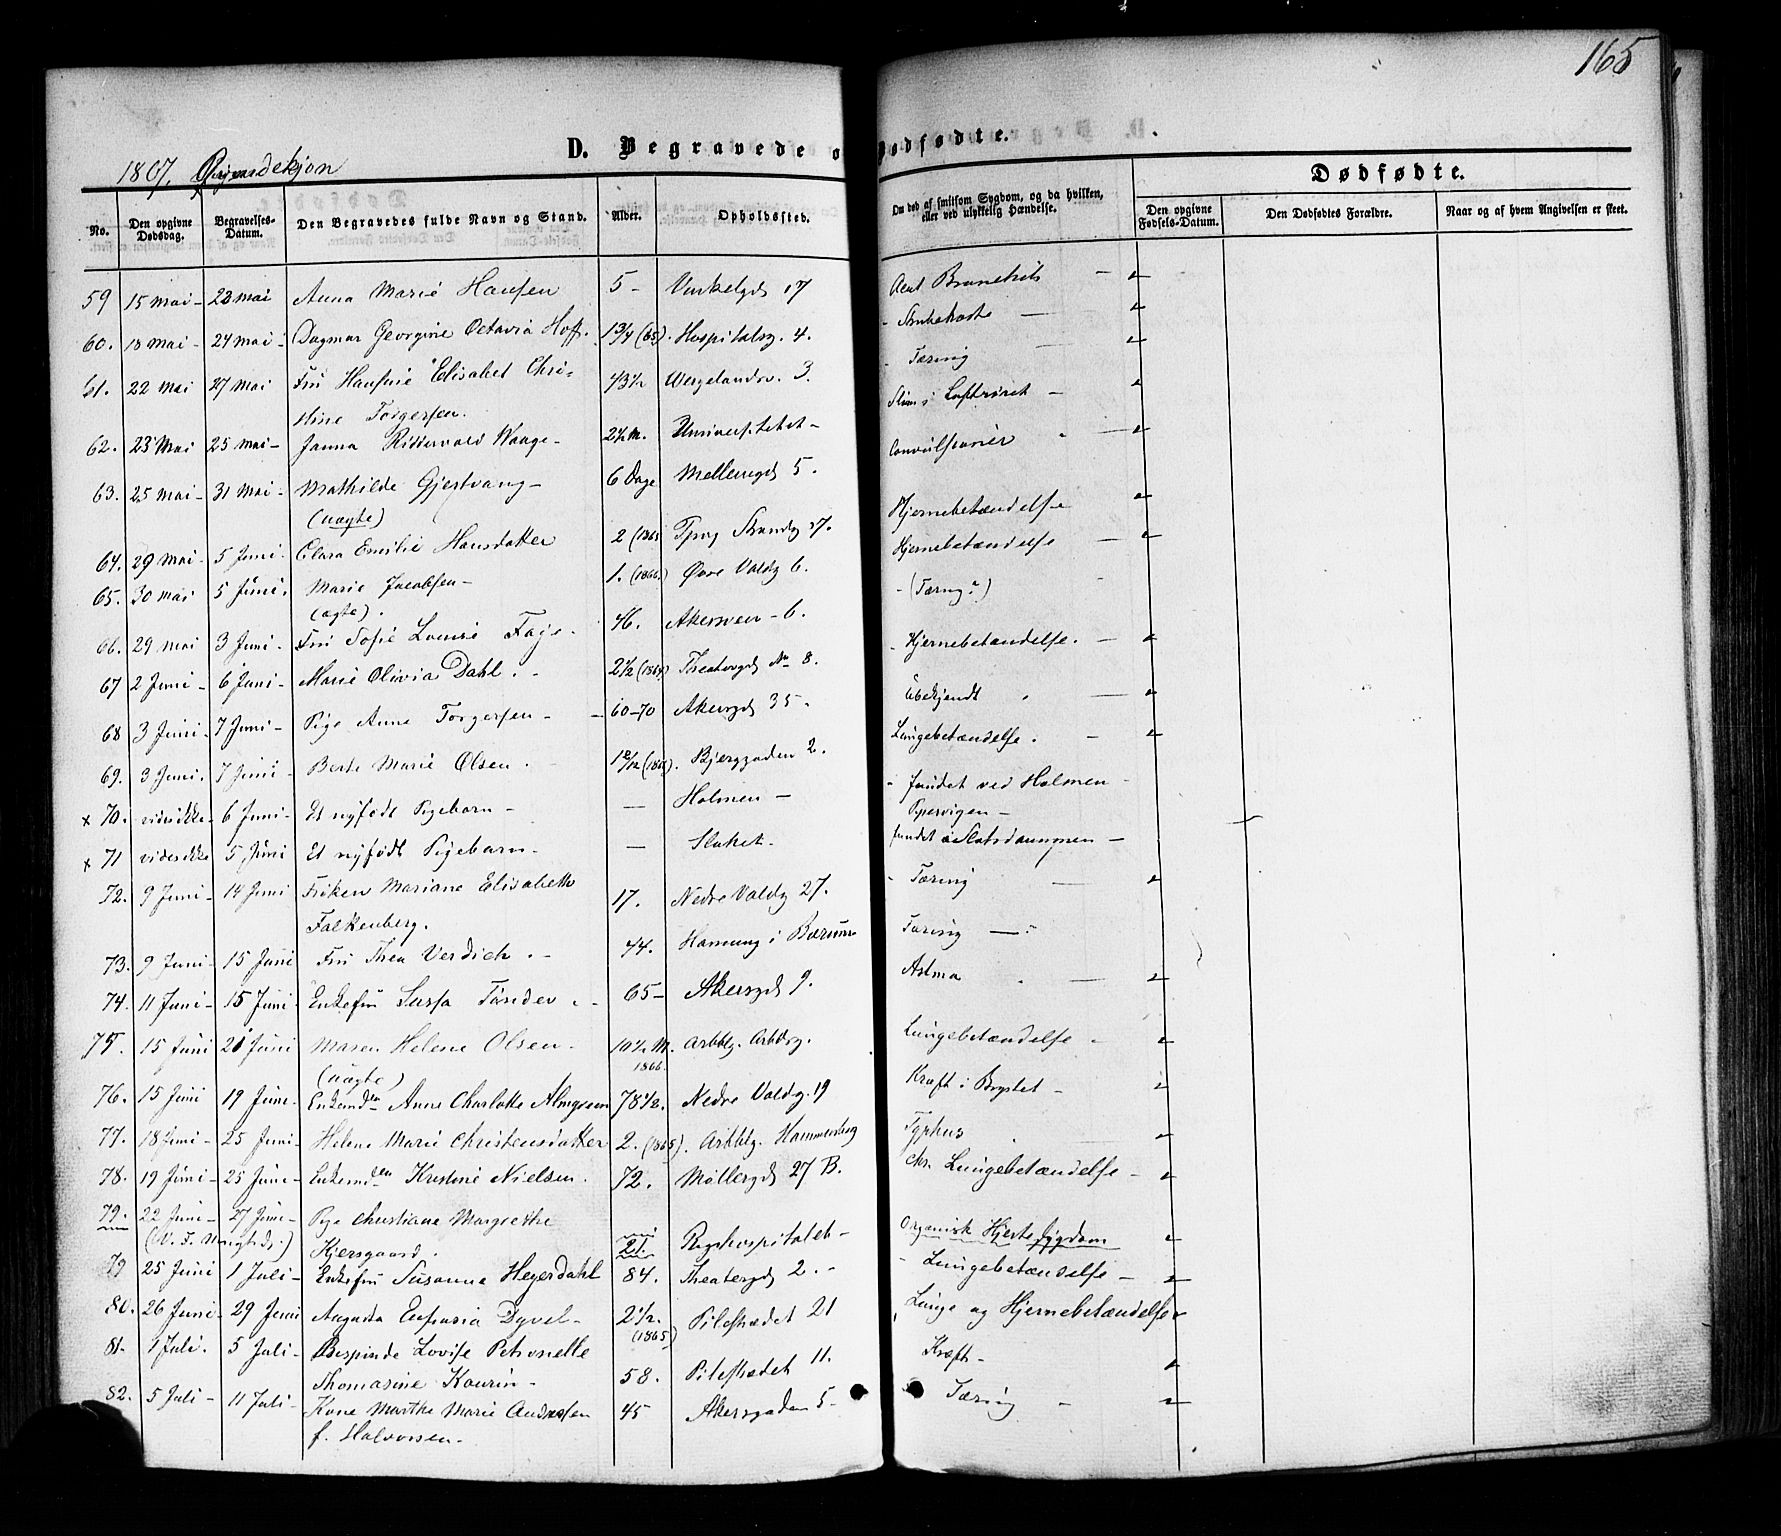 165
D. Begravede o
Dødfødte.
1867. Qvindekjøn
No. Den opgivne Dødsdag. Begravelses-Datum. Den Begravedes fulde Navn og Stand. Alder. Opholdssted. Om død af smitsom Sygdom, og da hvilken, eller ved ulykkelig Hændelse. Dødfødte.
Den opgivne Fødsels-Datum. Den Dødfødtes Forældre. Naar og af hvem Angivelsen er skeet.
59 15 Mai - 23 Mai Anna Marie Hansen 5 - Vinkelgd 17 Acut Bronchit
60. 18 Mai - 24 Mai - Dagmar Georgine Octavia Hoff. 1 3/4 (65). Hospitalsg. 4. - Strubehoste
61. 22 Mai 27 Mai Fru Hansine Elisabet Chri- 43 1/2 Wergelandsv. 3. - Tæring
stine Torgersen.
62. 23 Mai 25 Mai - Janna Ridderwold Waage - 2 1/2 M. Universitetet - Slim i Luftrøret -
63. 25 Mai - 31 Mai - Mathilde Gjestvang - 6 Dage Møllergd 5. Convulsioner
(uægte)
64. 29 Mai - 5 Juni. Clara Emilie Hansdatter 2 (1865 Tjuvh Strandg 17. Hjernebetændelse
65. 30 Mai 5 Juni. Marie Jacobsen - 1. (1866.) Øvre Voldg 6. Hjernebetændelse
(ægte).
66. 29 Mai 3 Juni - Fru Sofie Lovise Faye. 46. Akersveien - 6. - (Tæring?)
67 2 Juni - 6 Juni - Marie Olivia Dahl. - 2 1/2 (1864) Theatergd No 8. - Hjernebetændelse. -
68 3 Juni - 7 Juni - Pige Anne Torgersen - 60-70 Akersgd 35. Ubekjendt
69. 3 Juni. 7 Juni Berte Marie Olsen. Bjerggaden 2. Lungebetændelse. -
x 70. vides ikke - 6 Juni - Et nyfødt Pigebarn - — Holmen - - fundet ved Holmen - Pipervigen -
x 71 vides ikke 5 Juni Et nyfødt Pigebarn. — Slottet. fundet i Slotsdammen -
72. 9 Juni - 14 Juni Frøken Mariane Elisabeth 17. Nedre Voldg 27. - Tæring
Falkenberg.
73. 9 Juni - 15 Juni Fru Thea Verdich. - 44. Hamung i Bærum Tæring
74. 11 Juni - 15 Juni Enkefru Sussa Tønder. - 65 - Akersgd 9. Astma
75. 15 Juni 21 Juni Maren Helene Olsen. 10 1/2 M. Arbblg. Arbblg. Lungebetændelse
(uægte) 1866.
76. 15 Juni 19 Juni. Enkemden Anne Charlotte Almgreen 78 1/2. Nedre Voldg. 19 Kræft i Brystet -
77. 18 Juni - 25 Juni - Helene Marie Christensdatter 2. (1865). Arbblg. Hammersbog Typhus
78. 19 Juni - 25 Juni - Enkemden Kristine Nielsen. 72. Møllergd 27 B. chr. Lungebetændelse -
79. 22 Juni - 27 Juni - Pige Christiane Margrethe 21. Rigshospitalet - Organisk Hjertesygdom
Kjersgaard.
79 25 Juni 1 Juli - Enkefru Susanna Heyerdahl 84. Theatergd 2. - - Lungebetændelse -
80. 26 Juni - 29 Juni Augusta Eufrasia Dyvel - 2 1/2. (1865) Pilestrædet 21 Lunge og Hjernebetændelse
81. 1 Juli. 5 Juli - Lovise Petronelle
Thomasine Kaurin - 58. Pilestrædet 11. Kræft -
82. 5 Juli - 11 Juli - Kone Marthe Marie Andersen 45 Akersgaden 5 - Tæring -
f. Halvorsen -